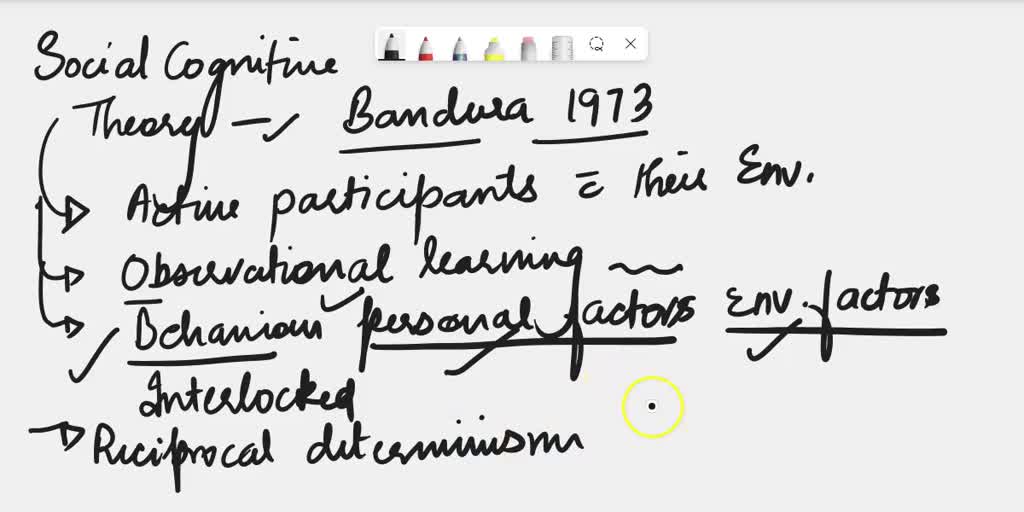 Social Cognitive
Theory - ✓ Bandura 1973
Active participants c̄ their Env.
Observational learning
Behaviour personal factors Env. factors
Interlocked
Reciprocal determinism